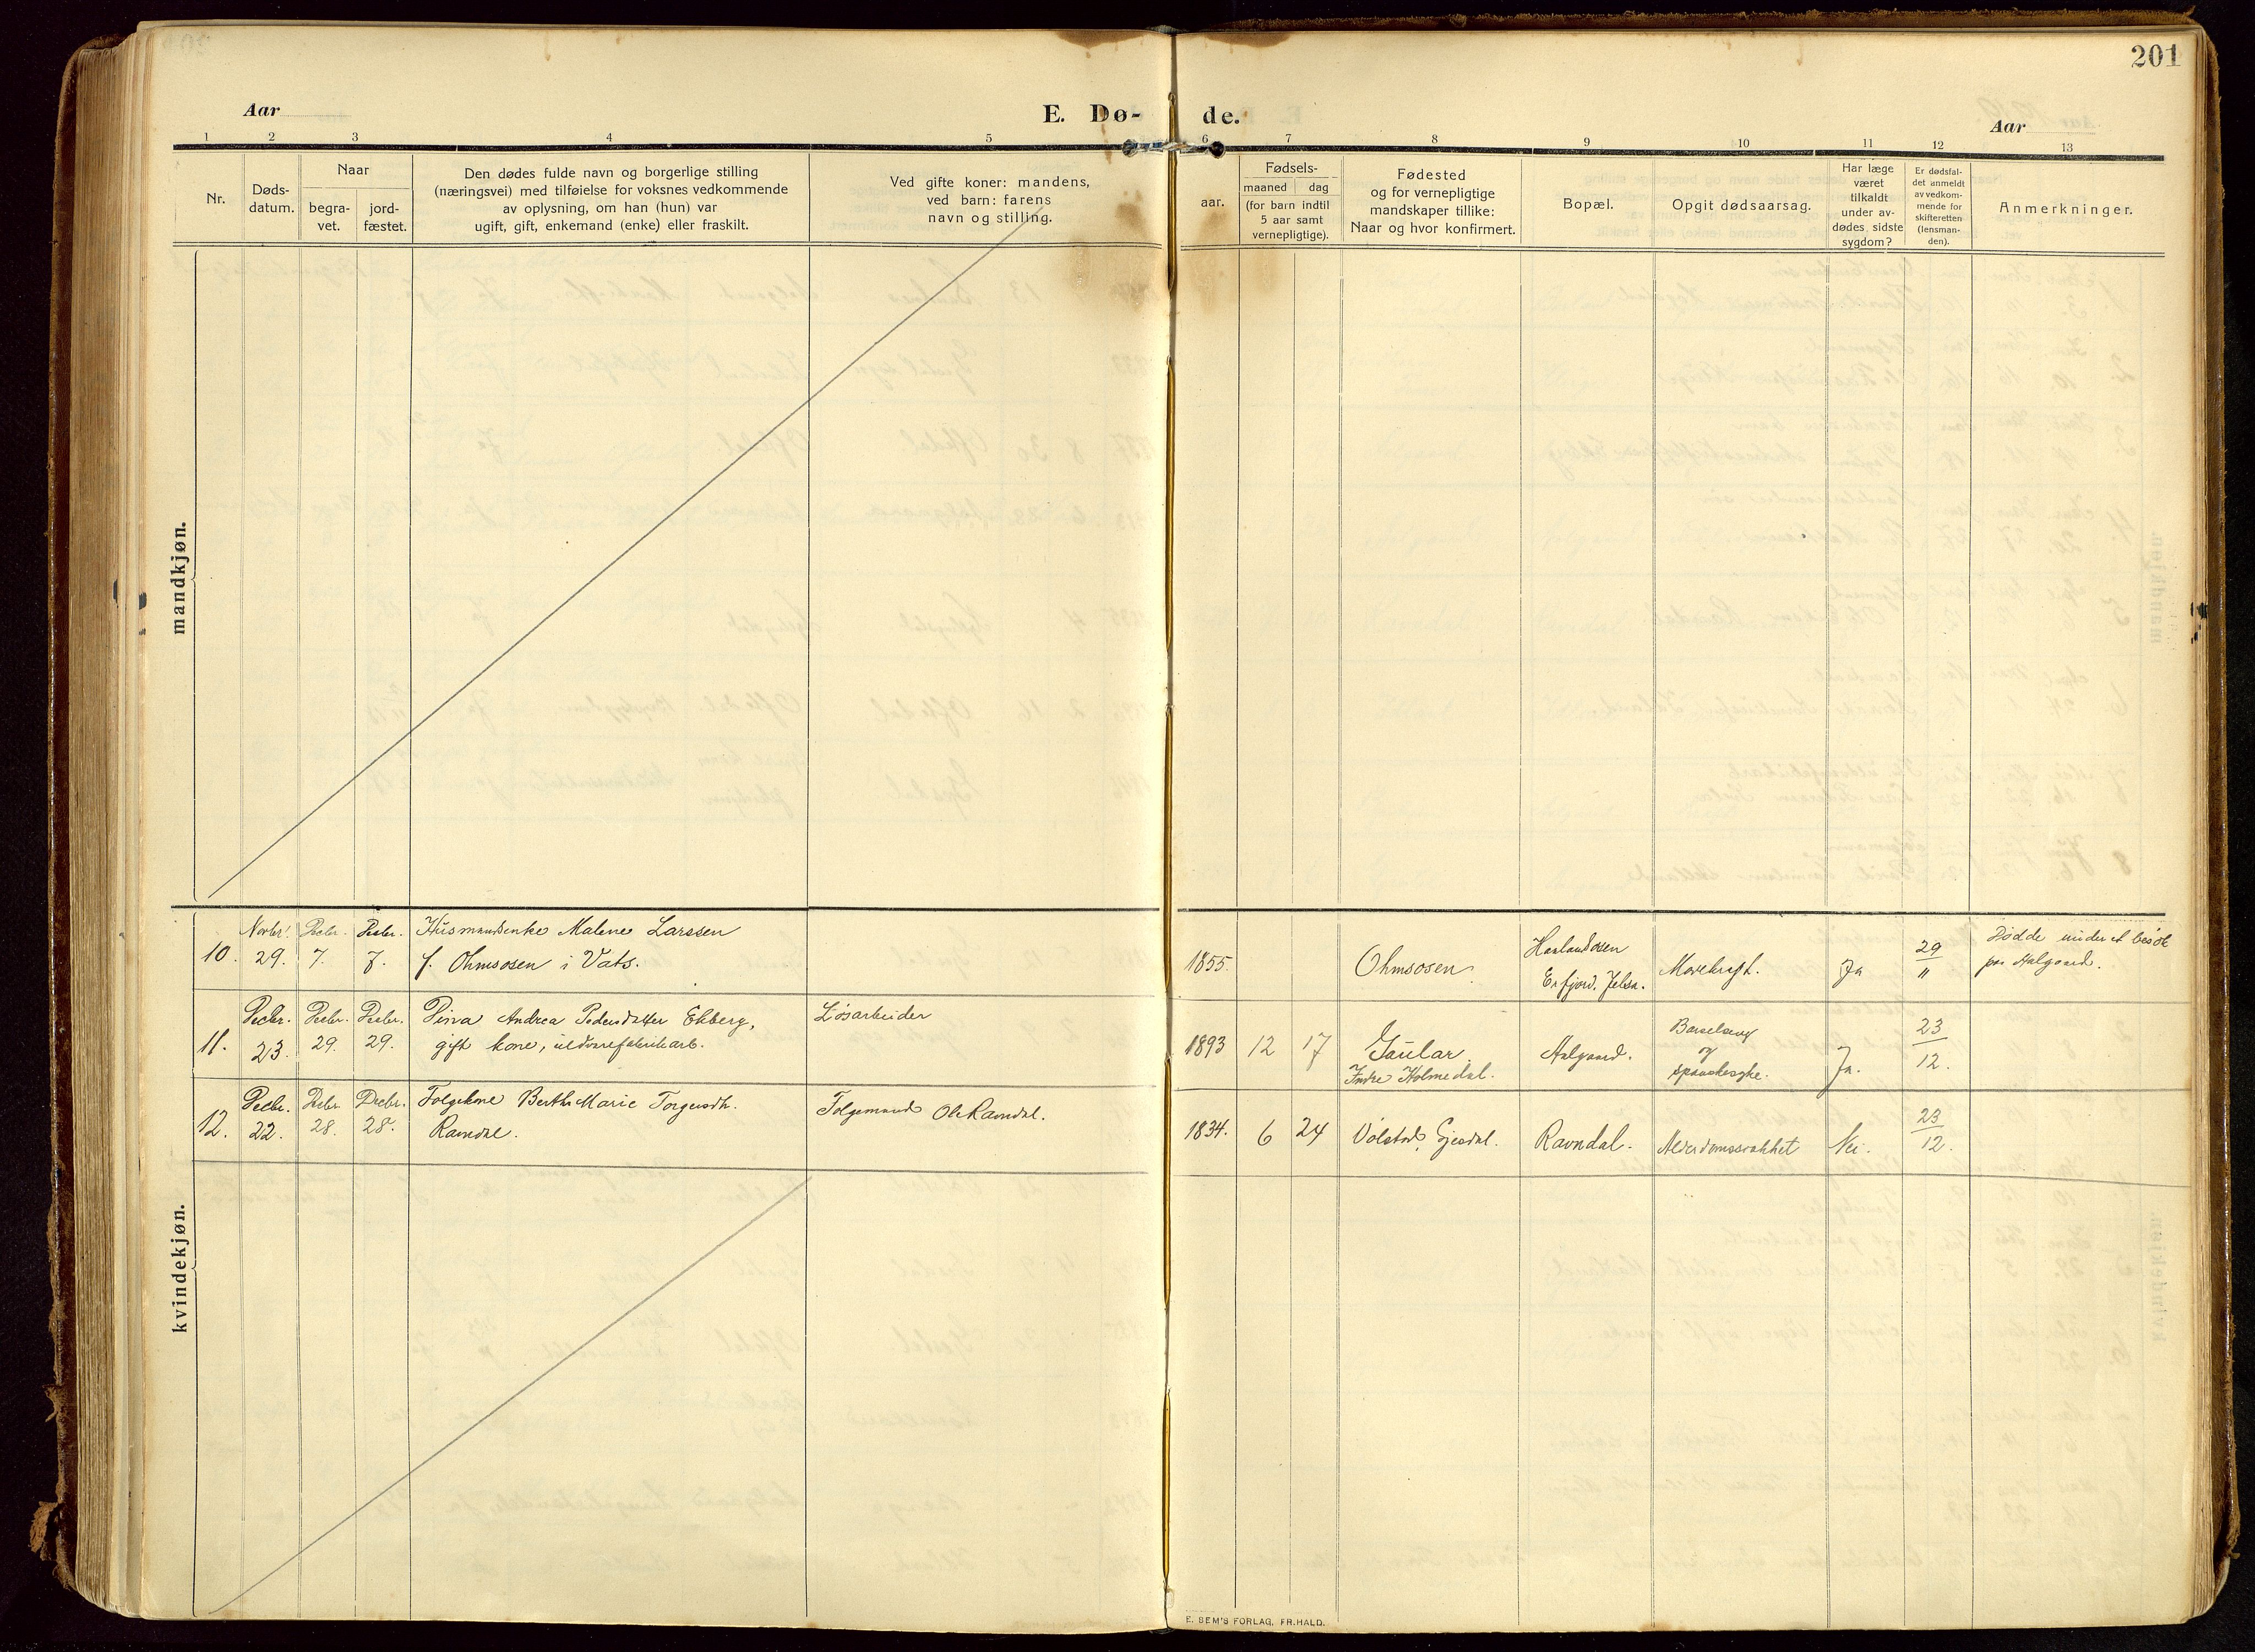 201
Aar
E. Dø-
de.
Aar
1 2 3 4 5 6 7 8 9 10 11 12 13
Nr.
Døds-
datum.
Naar
begra-
vet.
jord-
fæstet.
Den dødes fulde navn og borgerlige stilling
(næringsvei) med tilføielse for voksnes vedkommende
av oplysning, om han (hun) var
ugift, gift, enkemand (enke) eller fraskilt.
Ved gifte koner: mandens,
ved barn: farens
navn og stilling.
Fødsels-
aar.
maaned dag
(for barn indtil
5 aar samt
vernepligtige).
Fødested
og for vernepligtige
mandskaper tillike:
Naar og hvor konfirmert.
Bopæl.
Opgit dødsaarsag.
Har læge
været
tilkaldt
under av-
dødes sidste
sygdom?
Er dødsfal-
det anmeldt
av vedkom-
mende for
skifteretten
(lensman-
den).
Anmerkninger.
mandkjøn.
kvindekjøn.
10.
Novbr.
29.
Decbr.
7.
Decbr.
7.
Husmandsenke Malene Larssen
f. Ohmsosen i Vats.
1855.
Ohmsosen.
Erfjord. Jelsa.
Ja
29
"
Dødde under et besøk
paa Aalgaard.
11.
Decbr.
23.
Decbr.
29.
Decbr.
29.
Dina Andrea Pedersdatter Ekberg,
gift kone, uldvarefabrikarb.
Løsarbeider
1893 12 17
Gaular.
Indre Holmedal.
Aalgaard.
Barselseng
og
spanskesyke.
Ja.
23
12.
12.
Decbr.
22.
Decbr.
28.
Decbr.
28.
Folgekone Berthe Marie Torgersdtr.
Ravndal.
Folgemand Ole Ravndal.
1834. 6 24
Gjesdal.
Ravndal.
Alderdomssvakhet
Nei.
23
12.
E. BEM'S FORLAG, FR.HALD.